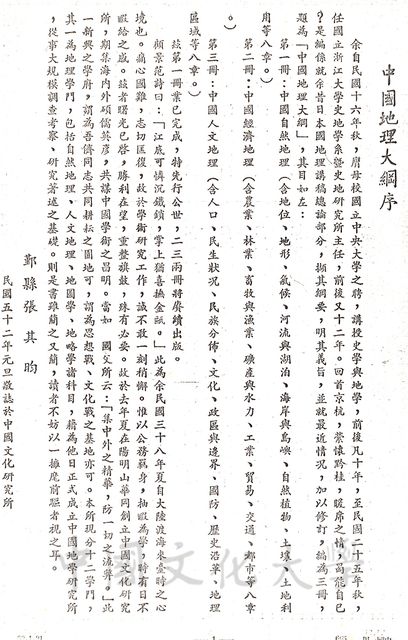 中國地理大綱序
余自民國十六年秋，膺母校國立中央大學之聘，講授史學與地學，前後凡十年，至民國二十五年秋，
任國立浙江大學史地學系暨史地研究所主任，前後又十二年。回首京杭，縈懷黔桂，暖席之情，曷能自已
？是編係就余昔日本國地理講稿總論部分，擷其綱要，明其義旨，並就最近情況，加以修訂，編為三冊，
題為「中國地理大綱」，其目如左：
第一冊：中國自然地理（含地位、地形、氣候、河流與湖泊、海岸與島嶼、自然植物、土壤、土地利
用等八章。）
第二冊：中國經濟地理（含農業、林業、畜牧與漁業、礦產與水力、工業、貿易、交通、都市等八章
。）
第三冊：中國人文地理（含人口、民生狀況、民族分佈、文化、政區與邊界、國防、歷史沿革、地理
區域等八章。）
茲第一冊業已完成，特先行公世，二三兩冊將賡續出版。
顧景范詩曰：「江底可憐沉鐵鎖，掌上猶喜撫金甌。」此為余民國三十八年夏自大陸渡海來臺時之心
境也。痛心國難，志切匡復，故於學術研究工作，誠不敢一刻稍懈。惟以公務羈身，抽暇為學，時有日不
暇給之感。茲者曙光已啓，勝利在望，重整旗鼓，殊有必要。故於去年夏在陽明山華岡創立中國文化研究
所，期集海內外碩儒英彥，共謀中國學術之昌明。當如　國父所云：「集中外之精華，防一切之流弊。」此
一新興之學府，謂為吾儕同志共同耕耘之園地可，謂為思想戰、文化戰之基地亦可。本所現分十二學門，
其一為地理學門，包括自然地理、人文地理、地圖學、地略學諸科目，藉為他日正式成立中國地學研究所
，從事大規模調查考察、研究著述之基礎。則是書雖簡之又簡，讀者不妨以一擁篲前驅者視之耳。
鄞縣張其昀
民國五十二年元旦敬誌於中國文化研究所
中國文化大學